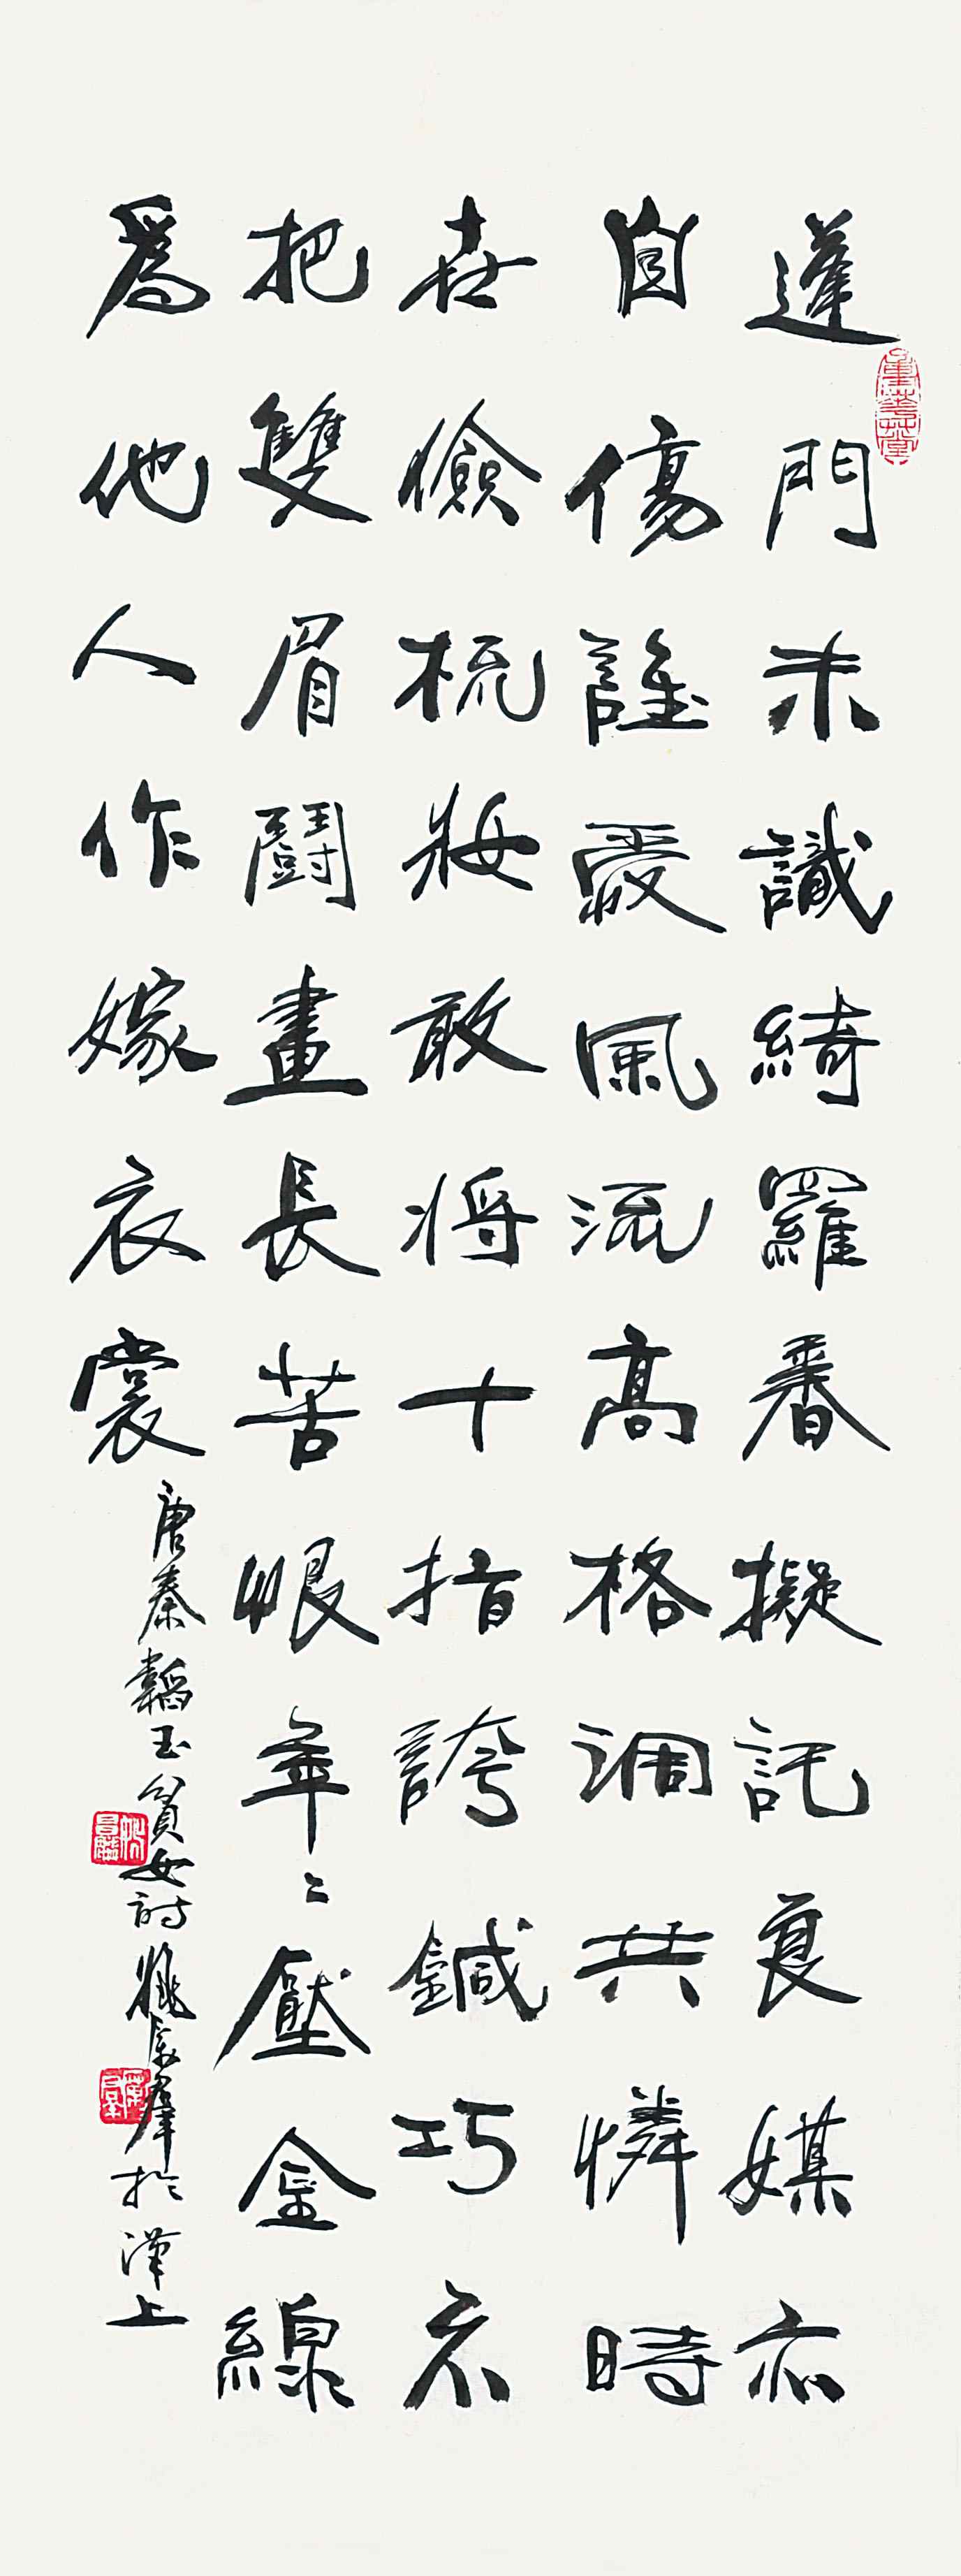 蓬門未識綺羅香擬託良媒亦
自傷誰愛風流高格調共憐時
世儉梳妝敢將十指誇鍼巧不
把雙眉鬭畫長苦恨年〻壓金線
為他人作嫁衣裳
唐秦韜玉貧女詩 群於漢上